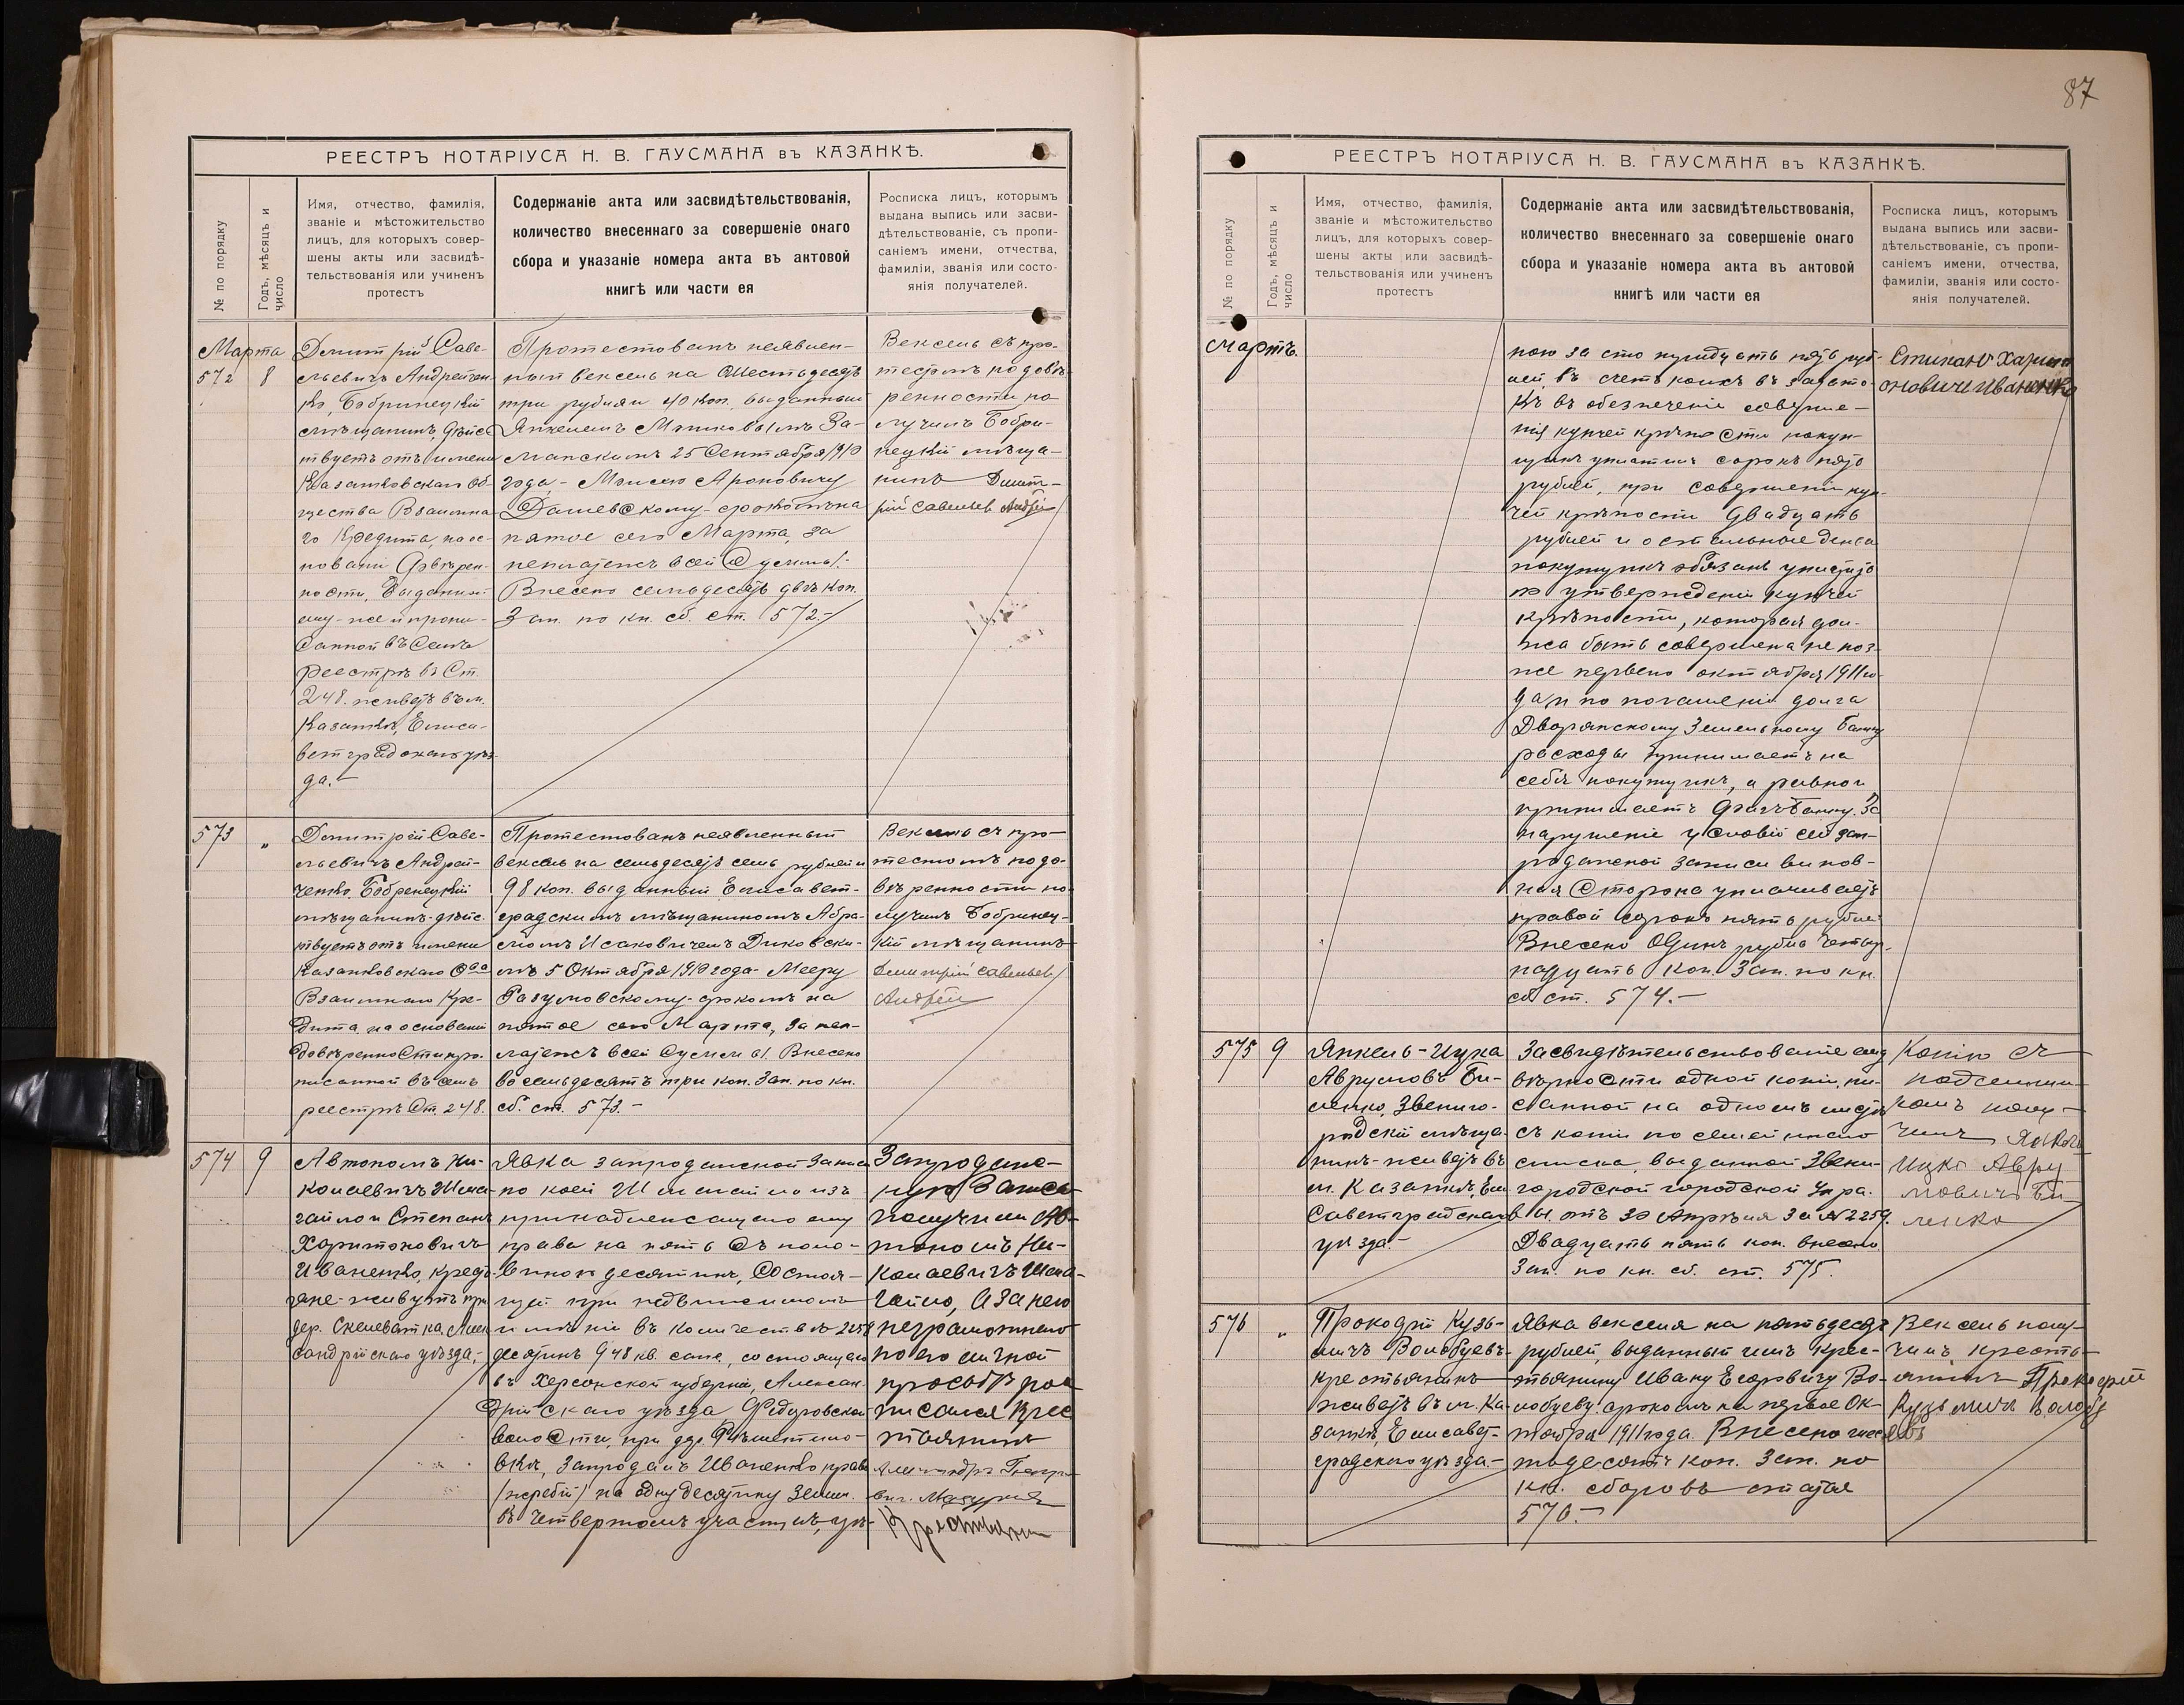 87
РЕЕСТРЪ НОТАРІУСА Н. В. ГАУСМАНА въ КАЗАНКѢ.
№ по порядку
Годъ, мѣсяцъ и
число
Имя, отчество, фамилія,
званіе и мѣстожительство
лицъ, для которыхъ совер-
шены акты или засвидѣ-
тельствованія или учиненъ
протестъ
Содержаніе акта или засвидѣтельствованія,
количество внесеннаго за совершеніе онаго
сбора и указаніе номера акта въ актовой
книгѣ или части ея
Росписка лицъ, которымъ
выдана выпись или засви-
дѣтельствованіе, съ пропи-
саніемъ имени, отчества,
фамиліи, званія или состо-
янія получателей.
Марта
572 8
Димитрій Саве-
льевичъ Андрейчен-
ко, Бобринецкій
мѣщанинъ, дѣйс-
твуетъ отъ имени
Казанковскаго Об-
щества Взаимна-
го Кредита, на ос-
нованіи довѣрен-
ности, выданной
ему-же и пропи-
санной въ семъ
реестрѣ въ Ст.
248. живетъ въ м.
Казанкѣ, Елиса-
ветградскаго уѣз-
да.-
Протестованъ неявлен-
ный вексель на шестьдесятъ
три рубля и 40 коп. выданный
Янкелемъ Мошковымъ За-
манскимъ 25 Сентября 1910
года - Моисею Ароновичу
Дашевскому - срокомъ на
пятое сего Марта, за
неплатежъ всей суммы.-
Внесено семьдесятъ двѣ коп.
Зап. по кн. сб. ст. 572.-
Вексель съ про-
тестомъ по довѣ-
ренности по-
лучилъ Бобри-
нецкій мѣща-
нинъ Димит-
рій Савельев Андрей
573 „
Димитрій Саве-
льевичъ Андрей-
ченко Бобринецкій
мѣщанинъ - дѣйс-
твуетъ отъ имени
Казанковскаго О-ва
Взаимнаго Кре-
дита, на основаніи
довѣренности про-
писанной въ семъ
реестрѣ Ст. 248.
Протестованъ неявленный
вексель на семьдесятъ семь рублей и
98 коп. выданный Елисавет-
градскимъ мѣщаниномъ Абра-
момъ Исаковичемъ Диковски-
мъ 5 Октября 1910 года - Мееру
Разумовскому - срокомъ на
пятое сего Марта, за неп-
латежъ всей суммы. Внесено
восемьдесятъ три коп. Зап. по кн.
сб. ст. 573.-
Вексель съ про-
тестомъ по до-
вѣренности по-
лучилъ Бобринец-
кій мѣщанинъ
Димитрій Савельев
Андрей
574 9
Автономъ Ни-
колаевичъ Шма-
гайло и Степанъ
Харитоновичъ
Иваненко, кресть-
яне - живутъ при
дер. Скелеватка, Алек-
сандрійскаго уѣзда,-
Явка запроданской записи
по коей Шмагайло изъ
принадлежащаго ему
права на пять съ поло-
виною десятинъ, состоя-
щей при недвижимомъ
имѣніи въ количествѣ 2258
десятинъ 948 кв. саж., состоящаго
въ Херсонской губерніи, Алексан-
дрійскаго уѣзда
волости, при дер.
вкѣ, запродалъ Иваненко право
(жребій) на одну десятину земли
въ четвертомъ участкѣ, цѣ-
Запроданс-
кую запись
получили Ав-
тономъ Ни-
колаевичъ Шма-
гайло, а за него
неграмотнаго
по его личной
просьбѣ рос-
писался Крес-
тьянинъ
Крестьянин
РЕЕСТРЪ НОТАРІУСА Н. В. ГАУСМАНА въ КАЗАНКѢ.
№ по порядку
Годъ, мѣсяцъ и
число
Имя, отчество, фамилія,
званіе и мѣстожительство
лицъ, для которыхъ совер-
шены акты или засвидѣ-
тельствованія или учиненъ
протестъ
Содержаніе акта или засвидѣтельствованія,
количество внесеннаго за совершеніе онаго
сбора и указаніе номера акта въ актовой
книгѣ или части ея
Росписка лицъ, которымъ
выдана выпись или засви-
дѣтельствованіе, съ пропи-
саніемъ имени, отчества,
фамиліи, званія или состо-
янія получателей.
Мартъ.
ною за сто тридцать пять руб-
лей, въ счетъ коихъ въ задато-
къ въ обезпеченіе соверше-
нія купчей крѣпости покуп-
щикъ уплатилъ сорокъ пять
рублей, при совершеніи куп-
чей крѣпости двадцать
рублей и остальные деньги
покупщикъ обязанъ уплатить
по утвержденіи купчей
крѣпости, которая дол-
жна быть совершена не поз-
же перваго октября 1911 го-
да, и по погашеніи долга
Дворянскому Земельному Банку
расходы принимаетъ на
себя покупщикъ, а равно и
принимаетъ долгъ Банку. За
нарушеніе условій сей зап-
роданской записи винов-
ная сторона уплачиваетъ
правой сорокъ пять рублей
Внесено одинъ рубль четыр-
надцать коп. Зап. по кн.
сб ст. 574.-
Степанъ Харит
оновичъ Иваненко
575 9
Янкель-Ицка
Аврумовъ Би-
ленко, Звениго-
родскій мѣща-
нинъ - живетъ въ
м. Казанкѣ, Ели-
саветградскаго
уѣзда.-
Засвидѣтельствованіе
вѣрности одной копіи, пи-
санной на одномъ листѣ
съ копіи посемейнаго
списка, выданной Звени-
городской городской Упра-
вы. отъ 30 Апрѣля за № 2259.
Двадцать пять коп. внесено.
Зап. по кн. сб. ст. 575.
Копію съ
подлинни-
комъ полу-
чилъ Янкель
Ицко Авру
мовичъ Би-
ленко
576 „
Прокофій Кузь-
мичъ Волобуевъ
крестьянинъ
живетъ въ м. Ка-
занкѣ, Елисавет-
градскаго уѣзда.-
Явка векселя на пятьдесятъ
рублей, выданный имъ Крес-
тьянину Ивану Егоровичу Во-
лобуеву срокомъ на первое Ок-
тября 1911 года. Внесено шес-
тьдесятъ коп. Зап. по
кн. сборовъ статья
576.-
Вексель полу-
чилъ кресть-
янинъ Прокофий
Кузьмичъ Волобу
евъ